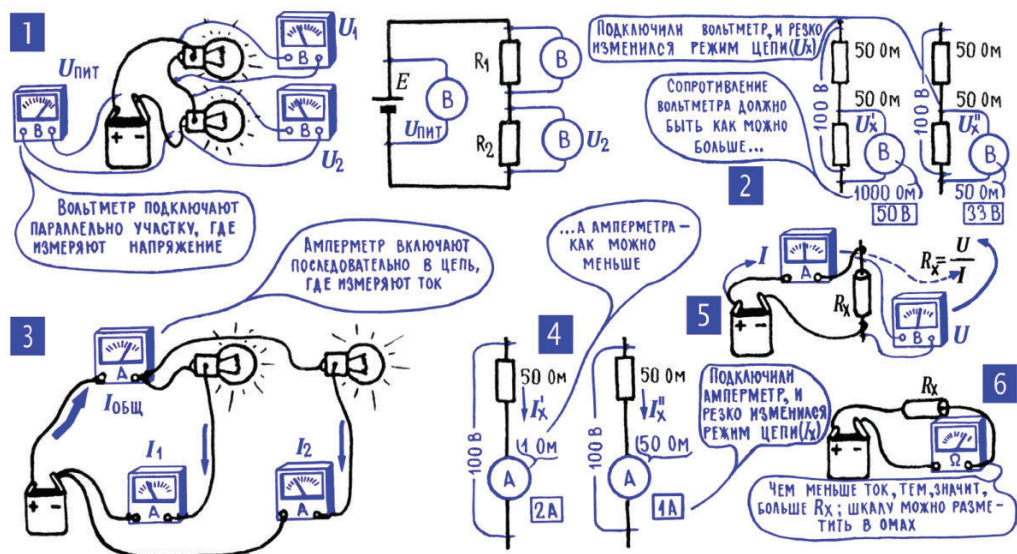 1
U ПИТ
В
+ −
U1
В
В
U2
ВОЛЬТМЕТР ПОДКЛЮЧАЮТ
ПАРАЛЛЕЛЬНО УЧАСТКУ, ГДЕ
ИЗМЕРЯЮТ НАПРЯЖЕНИЕ
E
В
UПИТ
R1
В
R2
В
U2
2
ПОДКЛЮЧИЛИ ВОЛЬТМЕТР, И РЕЗКО
ИЗМЕНИЛСЯ РЕЖИМ ЦЕПИ (Uх)
СОПРОТИВЛЕНИЕ
ВОЛЬТМЕТРА ДОЛЖНО
БЫТЬ КАК МОЖНО
БОЛЬШЕ...
50 Ом
100 В
50 Ом
Uх'
В
1000 Ом
50 В
50 Ом
100 В
50 Ом
Uх"
В
50 Ом
33 В
3
АМПЕРМЕТР ВКЛЮЧАЮТ
ПОСЛЕДОВАТЕЛЬНО В ЦЕПЬ,
ГДЕ ИЗМЕРЯЮТ ТОК
А
IОБЩ
I1
I2
А
А
+ −
4
...А АМПЕРМЕТРА –
КАК МОЖНО
МЕНЬШЕ
50 Ом
Iх'
100 В
1 Ом
А
2А
50 Ом
Iх"
100 В
50 Ом
А
1А
ПОДКЛЮЧИЛИ
АМПЕРМЕТР, И
РЕЗКО ИЗМЕНИЛСЯ
РЕЖИМ ЦЕПИ (Iх)
5
I
А
Rх = U/I
Rх
+ −
В
U
6
Rх
+ −
Ω
ЧЕМ МЕНЬШЕ ТОК, ТЕМ, ЗНАЧИТ,
БОЛЬШЕ Rх; ШКАЛУ МОЖНО РАЗМЕ-
ТИТЬ В ОМАХ